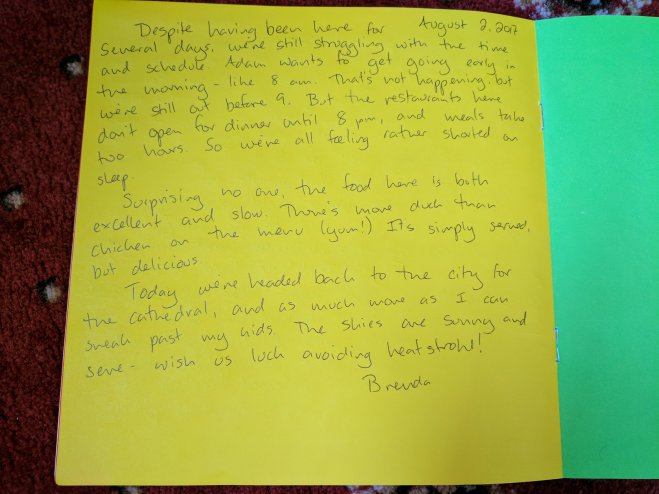 Despite having been here for August 2, 2017
several days, we're still struggling with the time
and schedule. Adam wants to get going early in
the morning - like 8 am. That's not happening, but
we're still out before 9. But the restaurants here
don't open for dinner until 8 pm, and meals take
two hours. So we're all feeling rather shorted on
sleep.
Surprising no one, the food here is both
excellent and slow. There's more duck than
chicken on the menu (yum!) It's simply served,
but delicious.
Today we're headed back to the city for
the cathedral, and as much more as I can
sneak past my kids. The skies are sunny and
sere - wish us luck avoiding heatstroke!
Brenda